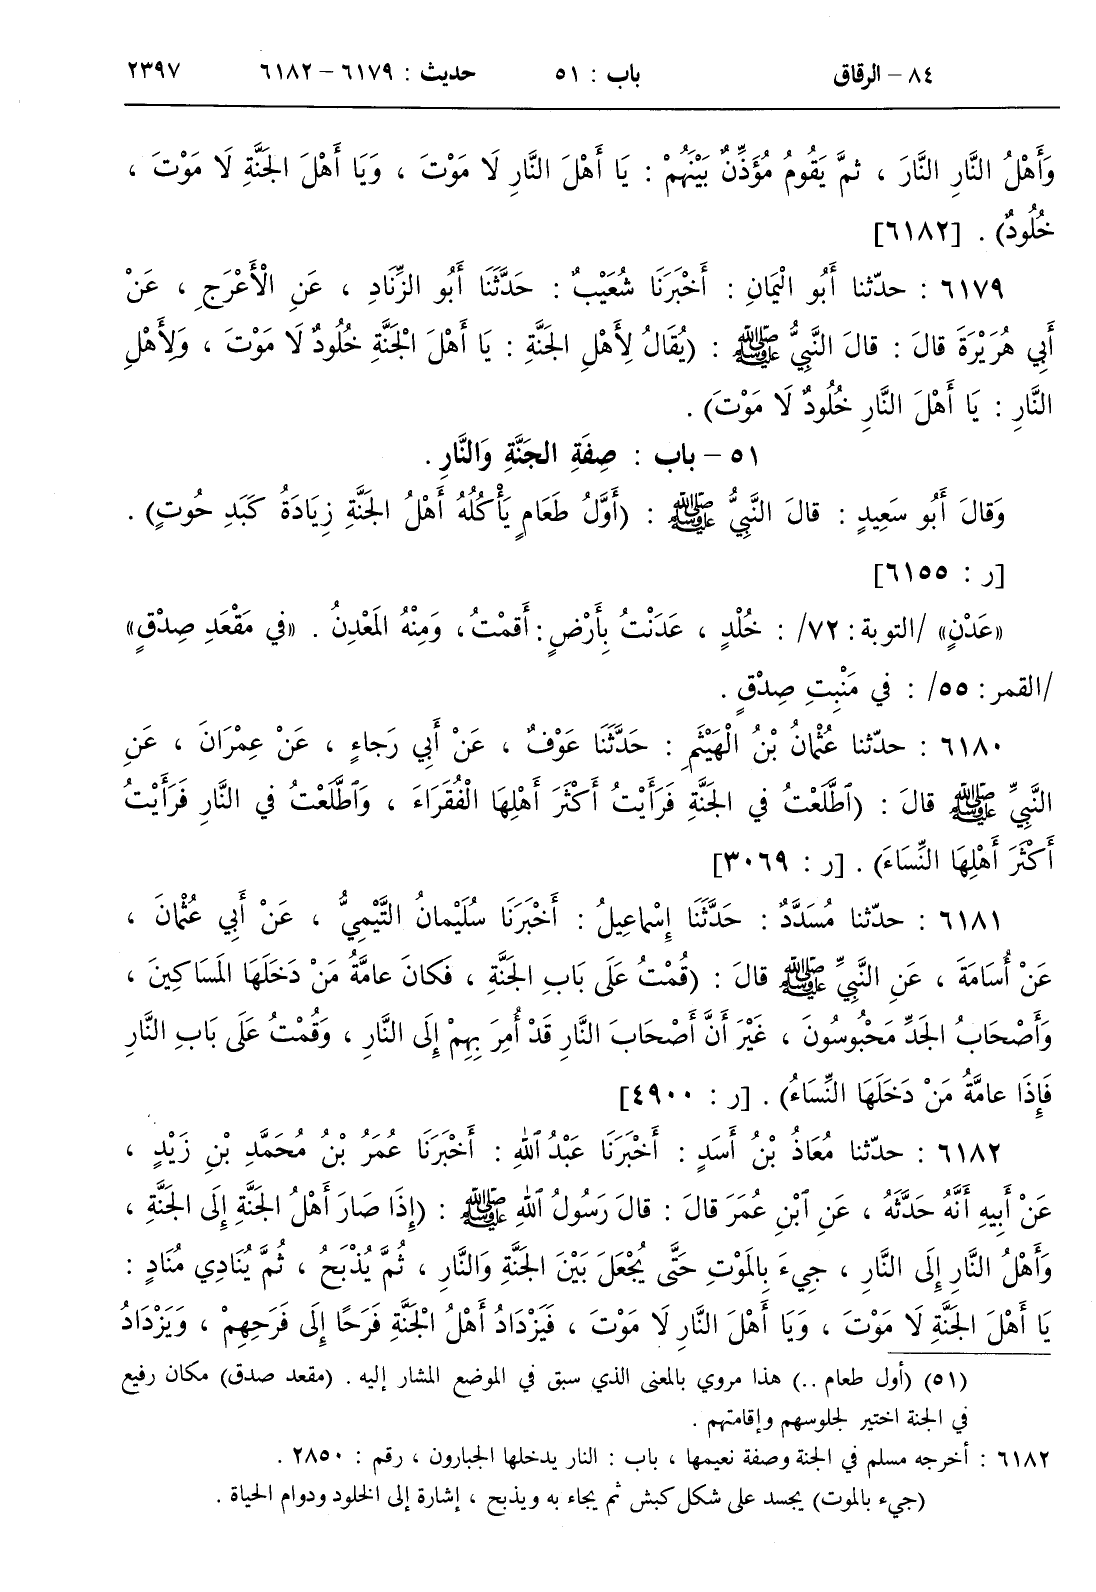 ٨٤ – الرقاق باب : ٥١ حديث : ٦١٧٩ – ٦١٨٢ ٢٣٩٧
وَأَهْلُ النَّارِ النَّارَ ، ثمَّ يَقُومُ مُؤَذِّنٌ بَيْنَهُمْ : يَا أَهْلَ النَّارِ لَا مَوْتَ ، وَيَا أَهْلَ الجَنَّةِ لَا مَوْتَ ،
خُلُودٌ) . [٦١٨٢]
٦١٧٩ : حدّثنا أَبُو الْيَمانِ : أَخْبَرَنَا شُعَيْبٌ : حَدَّثَنَا أَبُو الزِّنَادِ ، عَنِ الْأَعْرَجِ ، عَنْ
أَبِي هُرَيْرَةَ قالَ : قالَ النَّبِيُّ ﷺ : (يُقَالُ لِأَهْلِ الجَنَّةِ : يَا أَهْلَ الْجَنَّةِ خُلُودٌ لَا مَوْتَ ، وَلِأَهْلِ
النَّارِ : يَا أَهْلَ النَّارِ خُلُودٌ لَا مَوْتَ) .
٥١ – باب : صِفَةِ الجَنَّةِ وَالنَّارِ .
وَقالَ أَبُو سَعِيدٍ : قالَ النَّبِيُّ ﷺ : (أَوَّلُ طَعَامٍ يَأْكُلُهُ أَهْلُ الجَنَّةِ زِيَادَةُ كَبَدِ حُوتٍ) .
[ر : ٦١٥٥]
«عَدْنٍ» /التوبة : ٧٢/ : خُلْدٍ ، عَدَنْتُ بِأَرْضٍ : أَقمْتُ ، وَمِنْهُ المَعْدِنُ . «في مَقْعَدِ صِدْقٍ»
/القمر : ٥٥/ : في مَنْبِتِ صِدْقٍ .
٦١٨٠ : حدّثنا عُثْمانُ بْنُ الْهَيْثَمِ : حَدَّثَنَا عَوْفٌ ، عَنْ أَبِي رَجاءٍ ، عَنْ عِمْرَانَ ، عَنِ
النَّبِيِّ ﷺ قالَ : (ٱطَّلَعْتُ في الجَنَّةِ فَرَأَيْتُ أَكْثَرَ أَهْلِهَا الْفُقَرَاءَ ، وَٱطَّلَعْتُ في النَّارِ فَرَأَيْتُ
أَكْثَرَ أَهْلِهَا النِّسَاءَ) . [ر : ٣٠٦٩]
٦١٨١ : حدّثنا مُسَدَّدٌ : حَدَّثَنَا إِسْماعِيلُ : أَخْبَرَنَا سُلَيْمانُ التَّيْمِيُّ ، عَنْ أَبِي عُثْمانَ ،
عَنْ أُسَامَةَ ، عَنِ النَّبِيِّ ﷺ قالَ : (قُمْتُ عَلَى بَابِ الجَنَّةِ ، فَكانَ عامَّةُ مَنْ دَخَلَهَا المَسَاكِينَ ،
وَأَصْحَابُ الجَدِّ مَحْبُوسُونَ ، غَيْرَ أَنَّ أَصْحَابَ النَّارِ قَدْ أُمِرَ بِهِمْ إِلَى النَّارِ ، وَقُمْتُ عَلَى بَابِ النَّارِ
فَإِذَا عامَّةُ مَنْ دَخَلَهَا النِّسَاءُ) . [ر : ٤٩٠٠]
٦١٨٢ : حدّثنا مُعَاذُ بْنُ أَسَدٍ : أَخْبَرَنَا عَبْدُ ٱللهِ : أَخْبَرَنَا عُمَرُ بْنُ مُحَمَّدِ بْنِ زَيْدٍ ،
عَنْ أَبِيهِ أَنَّهُ حَدَّثَهُ ، عَنِ ٱبْنِ عُمَرَ قالَ : قالَ رَسُولُ ٱللهِ ﷺ : (إِذَا صَارَ أَهْلُ الجَنَّةِ إِلَى الجَنَّةِ ،
وَأَهْلُ النَّارِ إِلَى النَّارِ ، جِيءَ بِالمَوْتِ حَتَّى يُجْعَلَ بَيْنَ الجَنَّةِ وَالنَّارِ ، ثُمَّ يُذْبَحُ ، ثُمَّ يُنَادِي مُنَادٍ :
يَا أَهْلَ الجَنَّةِ لَا مَوْتَ ، وَيَا أَهْلَ النَّارِ لَا مَوْتَ ، فَيَزْدَادُ أَهْلُ الْجَنَّةِ فَرَحًا إِلَى فَرَحِهِمْ ، وَيَزْدَادُ
(٥١) (أول طعام ..) هذا مروي بالمعنى الذي سبق في الموضع المشار إليه . (مقعد صدق) مكان رفيع
في الجنة اختير لجلوسهم وإقامتهم .
٦١٨٢ : أخرجه مسلم في الجنة وصفة نعيمها ، باب : النار يدخلها الجبارون ، رقم : ٢٨٥٠ .
(جيء بالموت) يجسد على شكل كبش ثم يجاء به ويذبح ، إشارة إلى الخلود ودوام الحياة .